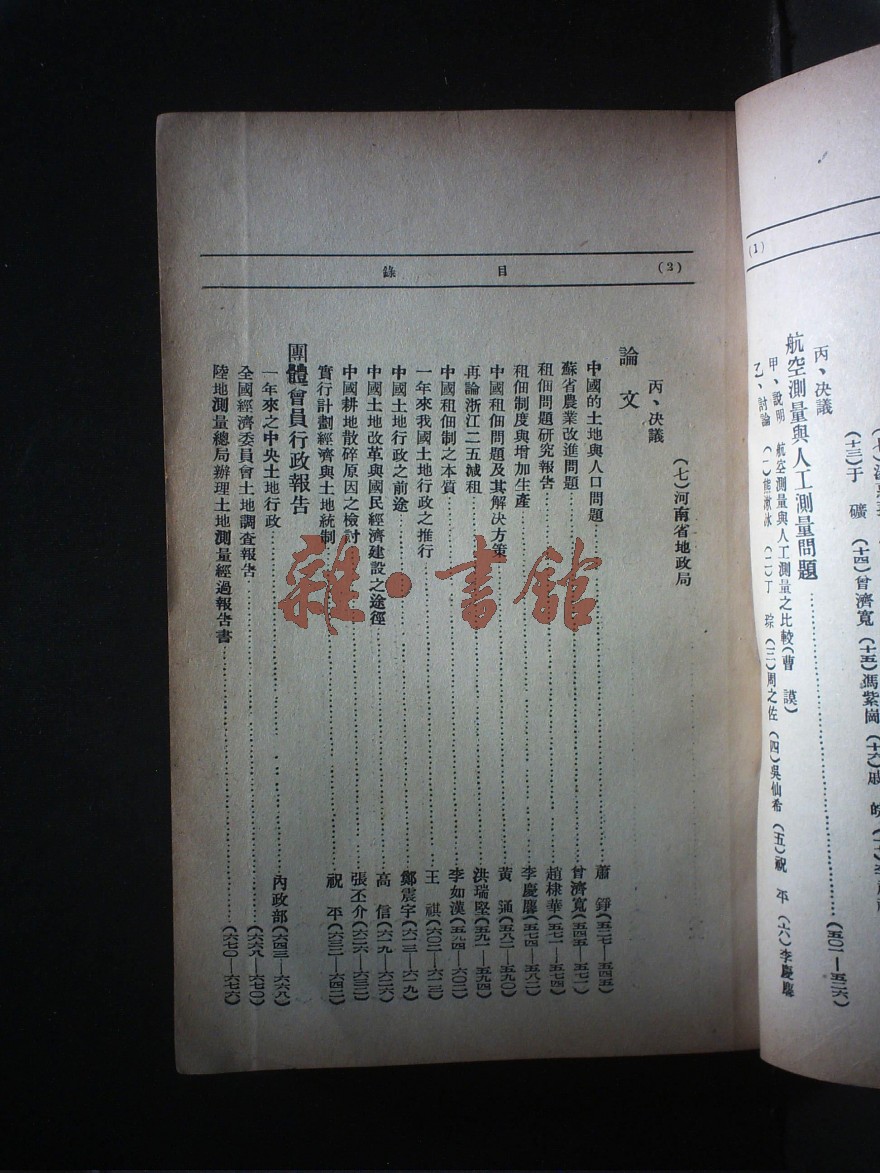 (1)
(十三)于 礦 (十四)曾濟寬 (十五)馮紫崗 (十六)戚
丙、決議
航空測量與人工測量問題……(五〇一—五二六)
甲、說明 航空測量與人工測量之比較(曹 謨)
乙、討論 (一)熊漱冰 (二)丁 琮 (三)周之佐 (四)吳仙希 (五)祝 平 (六)李慶麐
目 錄 (2)
(七)河南省地政局
丙、決議
論文
中國的土地與人口問題……蕭 錚(五二七—五四五)
蘇省農業改進問題……曾濟寬(五四五—五七一)
租佃問題研究報告……趙棣華(五七一—五七四)
租佃制度與增加生產……李慶麐(五七四—五八二)
中國租佃問題及其解決方策……黃 通(五八二—五九〇)
再論浙江二五減租……洪瑞堅(五九一—五九四)
中國租佃制之本質……李如漢(五九四—六〇二)
一年來我國土地行政之推行……王 祺(六〇二—六一三)
中國土地行政之前途……鄭震宇(六一三—六一九)
中國土地改革與國民經濟建設之途徑……高 信(六一九—六二六)
中國耕地散碎原因之檢討……張丕介(六二六—六三二)
實行計劃經濟與土地統制……祝 平(六三二—六四二)
團體會員行政報告
一年來之中央土地行政……內政部(六四三—六六八)
全國經濟委員會土地調查報告……(六六八—六七〇)
陸地測量總局辦理土地測量經過報告書……(六七〇—六七六)
雜·書館